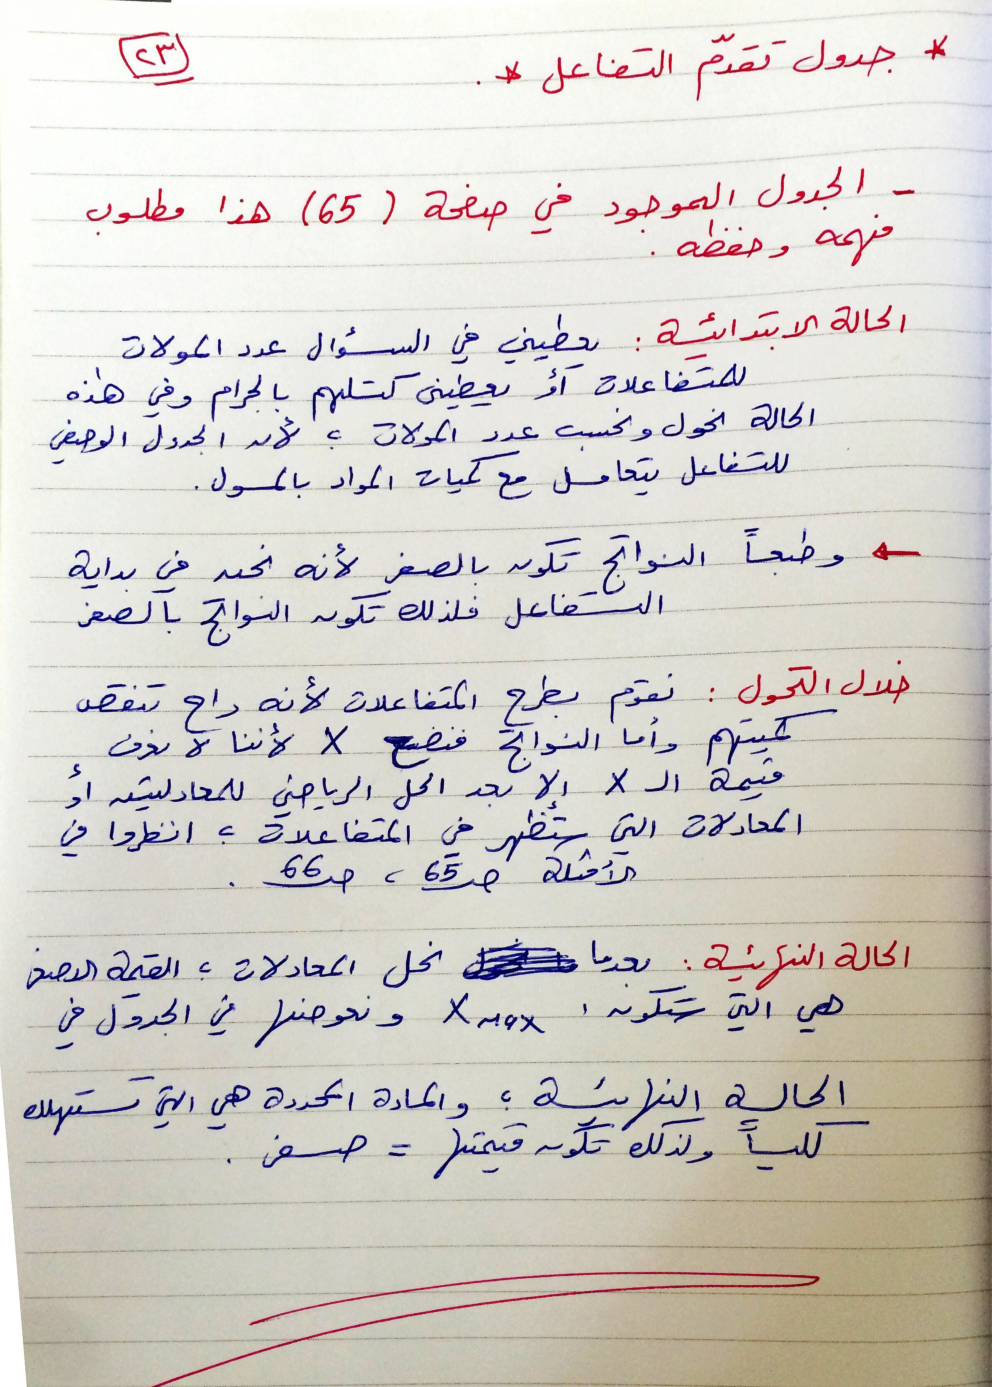 * جدول تقدّم التفاعل * .
٢٣
- الجدول الموجود في صفحة (65) هذا مطلوب
فهمه وحفظه .
الحالة الابتدائية : يعطيني في السؤال عدد المولات
للمتفاعلات أو يعطيني كتلهم بالجرام وفي هذه
الحالة نحول ونحسب عدد المولات ؛ لأن الجدول الوصفي
للتفاعل يتعامل مع كميات المواد بالمول .
← وطبعاً النواتج تكون بالصفر لأنه نحن في بداية
التفاعل فلذلك تكون النواتج بالصفر
خلال التحول : نقوم بطرح المتفاعلات لأنه راح تنقص
كميتهم وأما النواتج فنضع X لأننا لا نعرف
قيمة الـ X إلا بعد الحل الرياضي للمعادلتين أو
المعادلات التي ستظهر في المتفاعلات ؛ انظروا في
الأمثلة صـ65 ، صـ66 .
الحالة النهائية : بعدما نحل المعادلات ؛ القيمة الأصغر
هي التي ستكون Xmax ونعوضها في الجدول في
الحالة النهائية ؛ والمادة المحددة هي التي تستهلك
كلياً ولذلك تكون قيمتها = صفر .